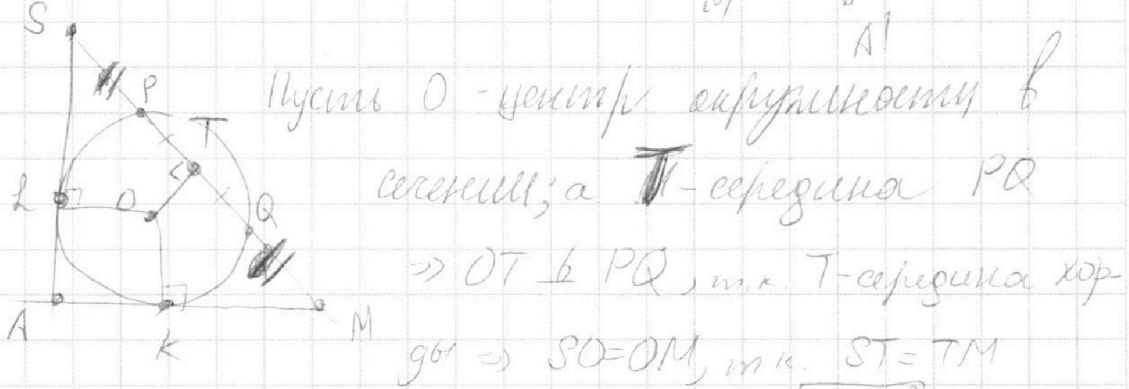 A'
S
P
T
L
O
Q
A
K
M
Пусть O - центр окружности в
сечении; а T - середина PQ
=> OT ⊥ PQ, т.к. T - середина хор-
ды => SO = OM, т.к. ST = TM